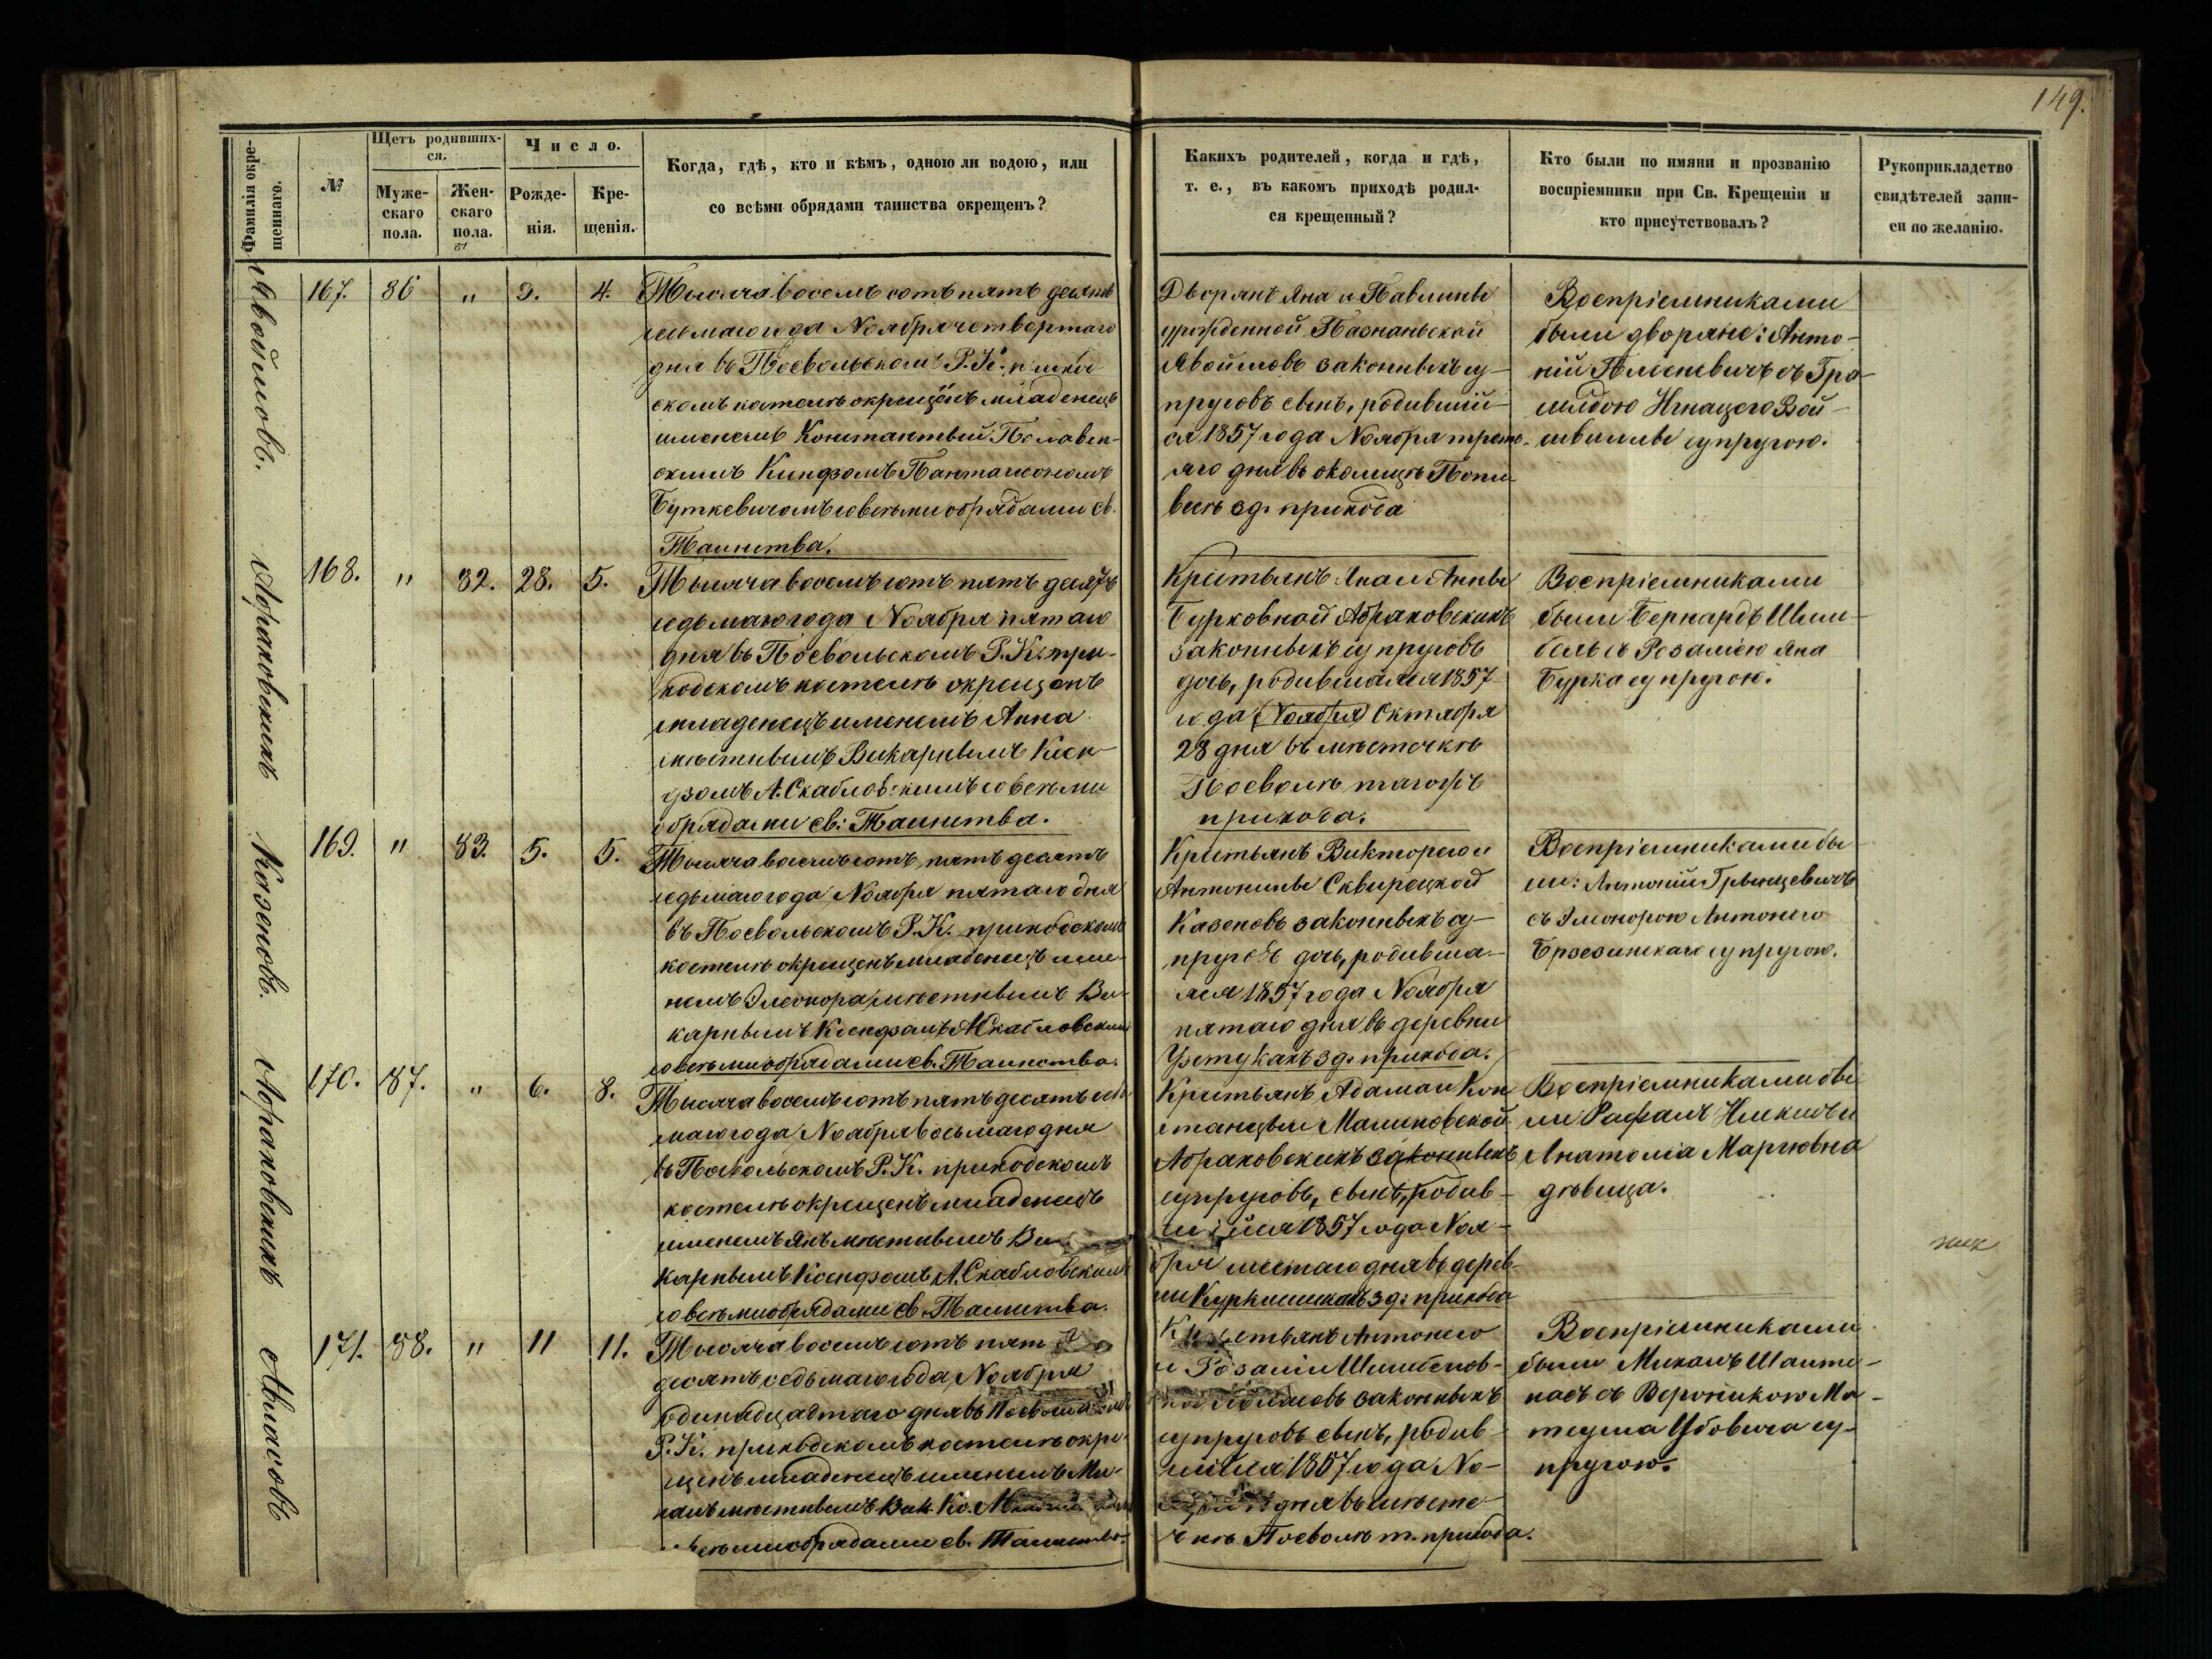 149.
Фамилія окре-
щеннаго.
№
Щетъ родивших-
ся.
Муже-
скаго
пола.
Жен-
скаго
пола.
Число.
Рожде-
нія.
Кре-
щенія.
Когда, гдѣ, кто и кѣмъ, одною ли водою, или
со всѣми обрядами таинства окрещенъ?
Какихъ родителей, когда и гдѣ,
т. е., въ какомъ приходѣ родил-
ся крещенный?
Кто были по имяни и прозванію
воспріемники при Св. Крещеніи и
кто присутствовалъ?
Рукоприкладство
свидѣтелей запи-
си по желанію.
Явойшовъ.
167. 86 " 3. 4.
Тысяча восемь сотъ пять десятъ
седьмаго года Ноября четвертаго
дня въ Посвольскомъ Р. К. приход
скомъ костелѣ окрещенъ младенецъ
именемъ Константый
скимъ Ксендзомъ Панталеономъ
Буткевичомъ совсѣми обрядами св.
Таинства.
Дворянъ Яна и Павлины
урожденной Познаньской
Явойшовъ законныхъ су-
пруговъ сынъ, родившій-
ся 1857 года Ноября треть-
яго дня въ околицѣ
сег зд. прихода
Воспріемниками
были дворяне: Анто-
ній съ Гра-
супругою.
Абраковскихъ
168. " 82. 28. 5.
Тысяча восемь сотъ пять десятъ
седьмаго года Ноября пятаго
дня въ Посвольскомъ Р. К. при-
ходскомъ костелѣ окрещенъ
младенецъ именемъ Анна
мѣстнымъ Викарнымъ Ксен-
дзомъ А. Скабловскимъ совсѣми
обрядами св: Таинства.
Крестьянъ Яна и Анны
Бурковной Абраковскихъ
законныхъ супруговъ
дочь, родившаяся 1857
года (Ноября) Октября
28 дня въ мѣстечкѣ
Посволѣ тогожъ
прихода.
Воспріемниками
были Бернардъ Шим-
бель съ Розаліею Яна
Бурка супругою.
Казеновъ.
169. " 83. 5. 5.
Тысяча восемь сотъ пять десятъ
седьмаго года Ноября пятаго дня
въ Посвольскомъ Р. К. приходскомъ
костелѣ окрещенъ младенецъ име-
немъ Элеонора мѣстнымъ Ви-
карнымъ Ксендзомъ А. Скабловскимъ
совсѣми обрядами св. Таинства.
Крестьянъ Викторего и
Антонины Сквирецкой
Казеновъ законныхъ су-
пруговъ дочь, родивша-
яся 1857 года Ноября
пятаго дня въ деревни
зд. прихода.
Воспріемниками бы
ли: Антоній Грынцевичъ
съ Элеонорою Антонего
Брзезинскаго супругою.
Абраковскихъ
170. 87. " 6. 8.
Тысяча восемь сотъ пять десятъ седь
маго года Ноября восьмаго дня
въ Посвольскомъ Р. К. приходскомъ
костелѣ окрещенъ младенецъ
именемъ Янъ мѣстнымъ Ви-
карнымъ Ксендзомъ А. Скабловскимъ
совсѣми обрядами св. Таинства.
Крестьянъ Адама и Кон
станцыи Малиновской
Абраковскихъ законныхъ
супруговъ, сынъ, родив-
шійся 1857 года Ноя-
бря шестаго дня въ дерев-
ни Куркишкахъ зд: прихода
Воспріемниками бы
ли Рафалъ и
Анатолія Марцовна
дѣвица.
171. 88. " 11 11.
Тысяча восемь сотъ пят
десятъ седьмаго года, Ноября
одинадцатаго дня въ Посвольскомъ
Р. К. приходскомъ костелѣ окре-
щенъ младенецъ именемъ Ми-
халъ мѣстнымъ Вик. Кс.
совсѣми обрядами св. Таинства.
Крестьянъ Антонего
и Розаліи
законныхъ
супруговъ сынъ, родив-
шійся 1857 года Но-
дня въ мѣсте-
чкѣ Посволѣ т. прихода.
Воспріемниками
были Михалъ
насъ съ Вероникою Ма-
теуша су-
пругою.